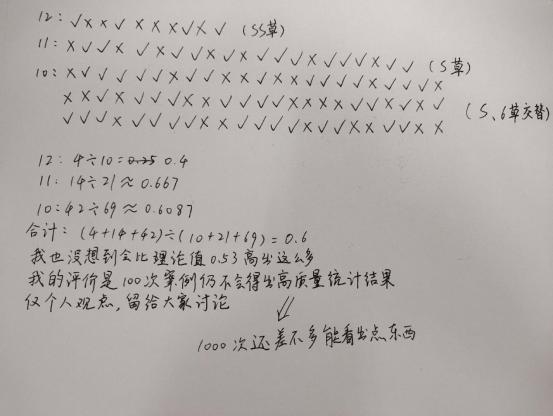 12: ✓××✓×××✓×✓ (SS草)
11: ×✓✓×✓×✓✓×✓×✓✓✓✓×✓✓×✓✓ (S草)
10: ×✓✓✓✓✓×✓✓×✓××××✓✓×✓✓✓✓×
××✓×✓✓✓××✓✓✓✓××××✓✓×✓×✓ (S、6草交替)
✓✓✓×✓✓✓✓××✓✓✓✓✓×✓✓××✓✓××
12: 4÷10=0.4
11: 14÷21≈0.667
10: 42÷69≈0.6087
合计: (4+14+42)÷(10+21+69)=0.6
我也没想到会比理论值0.53高出这么多
我的评价是100次案例仍不会得出高质量统计结果
仅个人观点,留给大家讨论
⇓
1000次还差不多能看出点东西